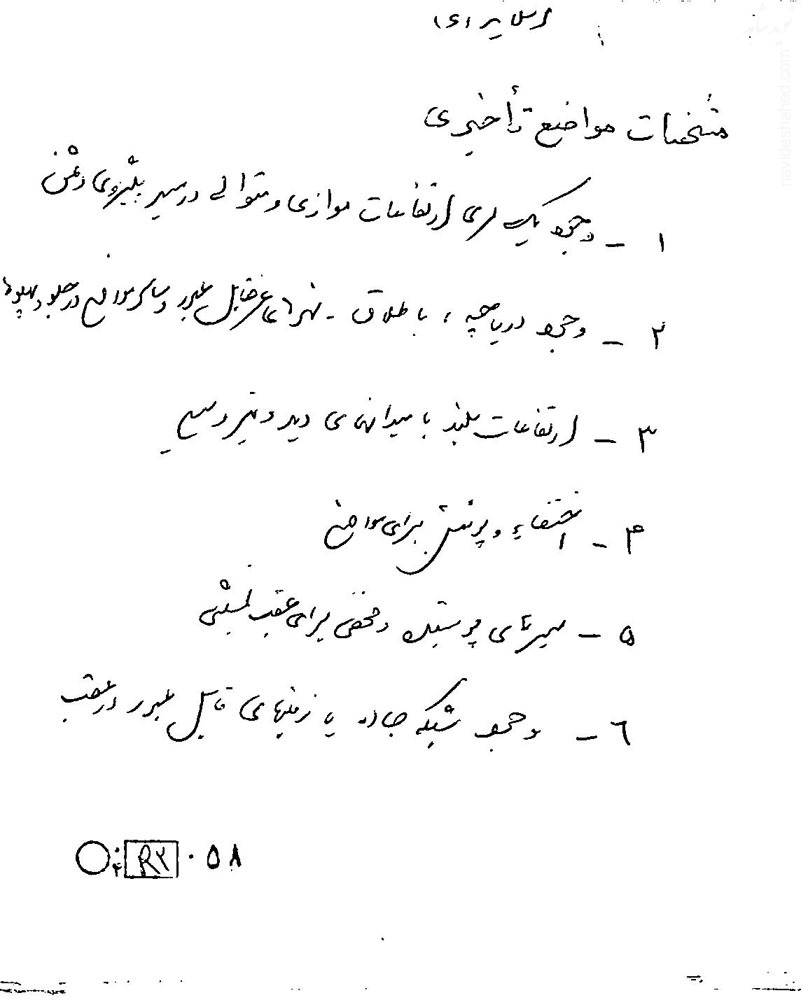 مشخصات مواضع تأخیری
۱ - وجود یک سری ارتفاعات موازی و متوالی در مسیر پیشروی دشمن
۲ - وجود دریاچه ، باطلاق - نهرهای غیر قابل عبور و سایر موانع در جلو و پهلوها
۳ - ارتفاعات بلند با میدانهای دید و تیر وسیع
۴ - اختفاء و پوشش برای مواضع
۵ - مسیرهای پوشیده و مخفی برای عقب نشینی
٦ - وجود شبکه جاده یا زمینهای قابل عبور در عقب
R۲ ۰۵۸
navideshahed.com
نوید شاهد